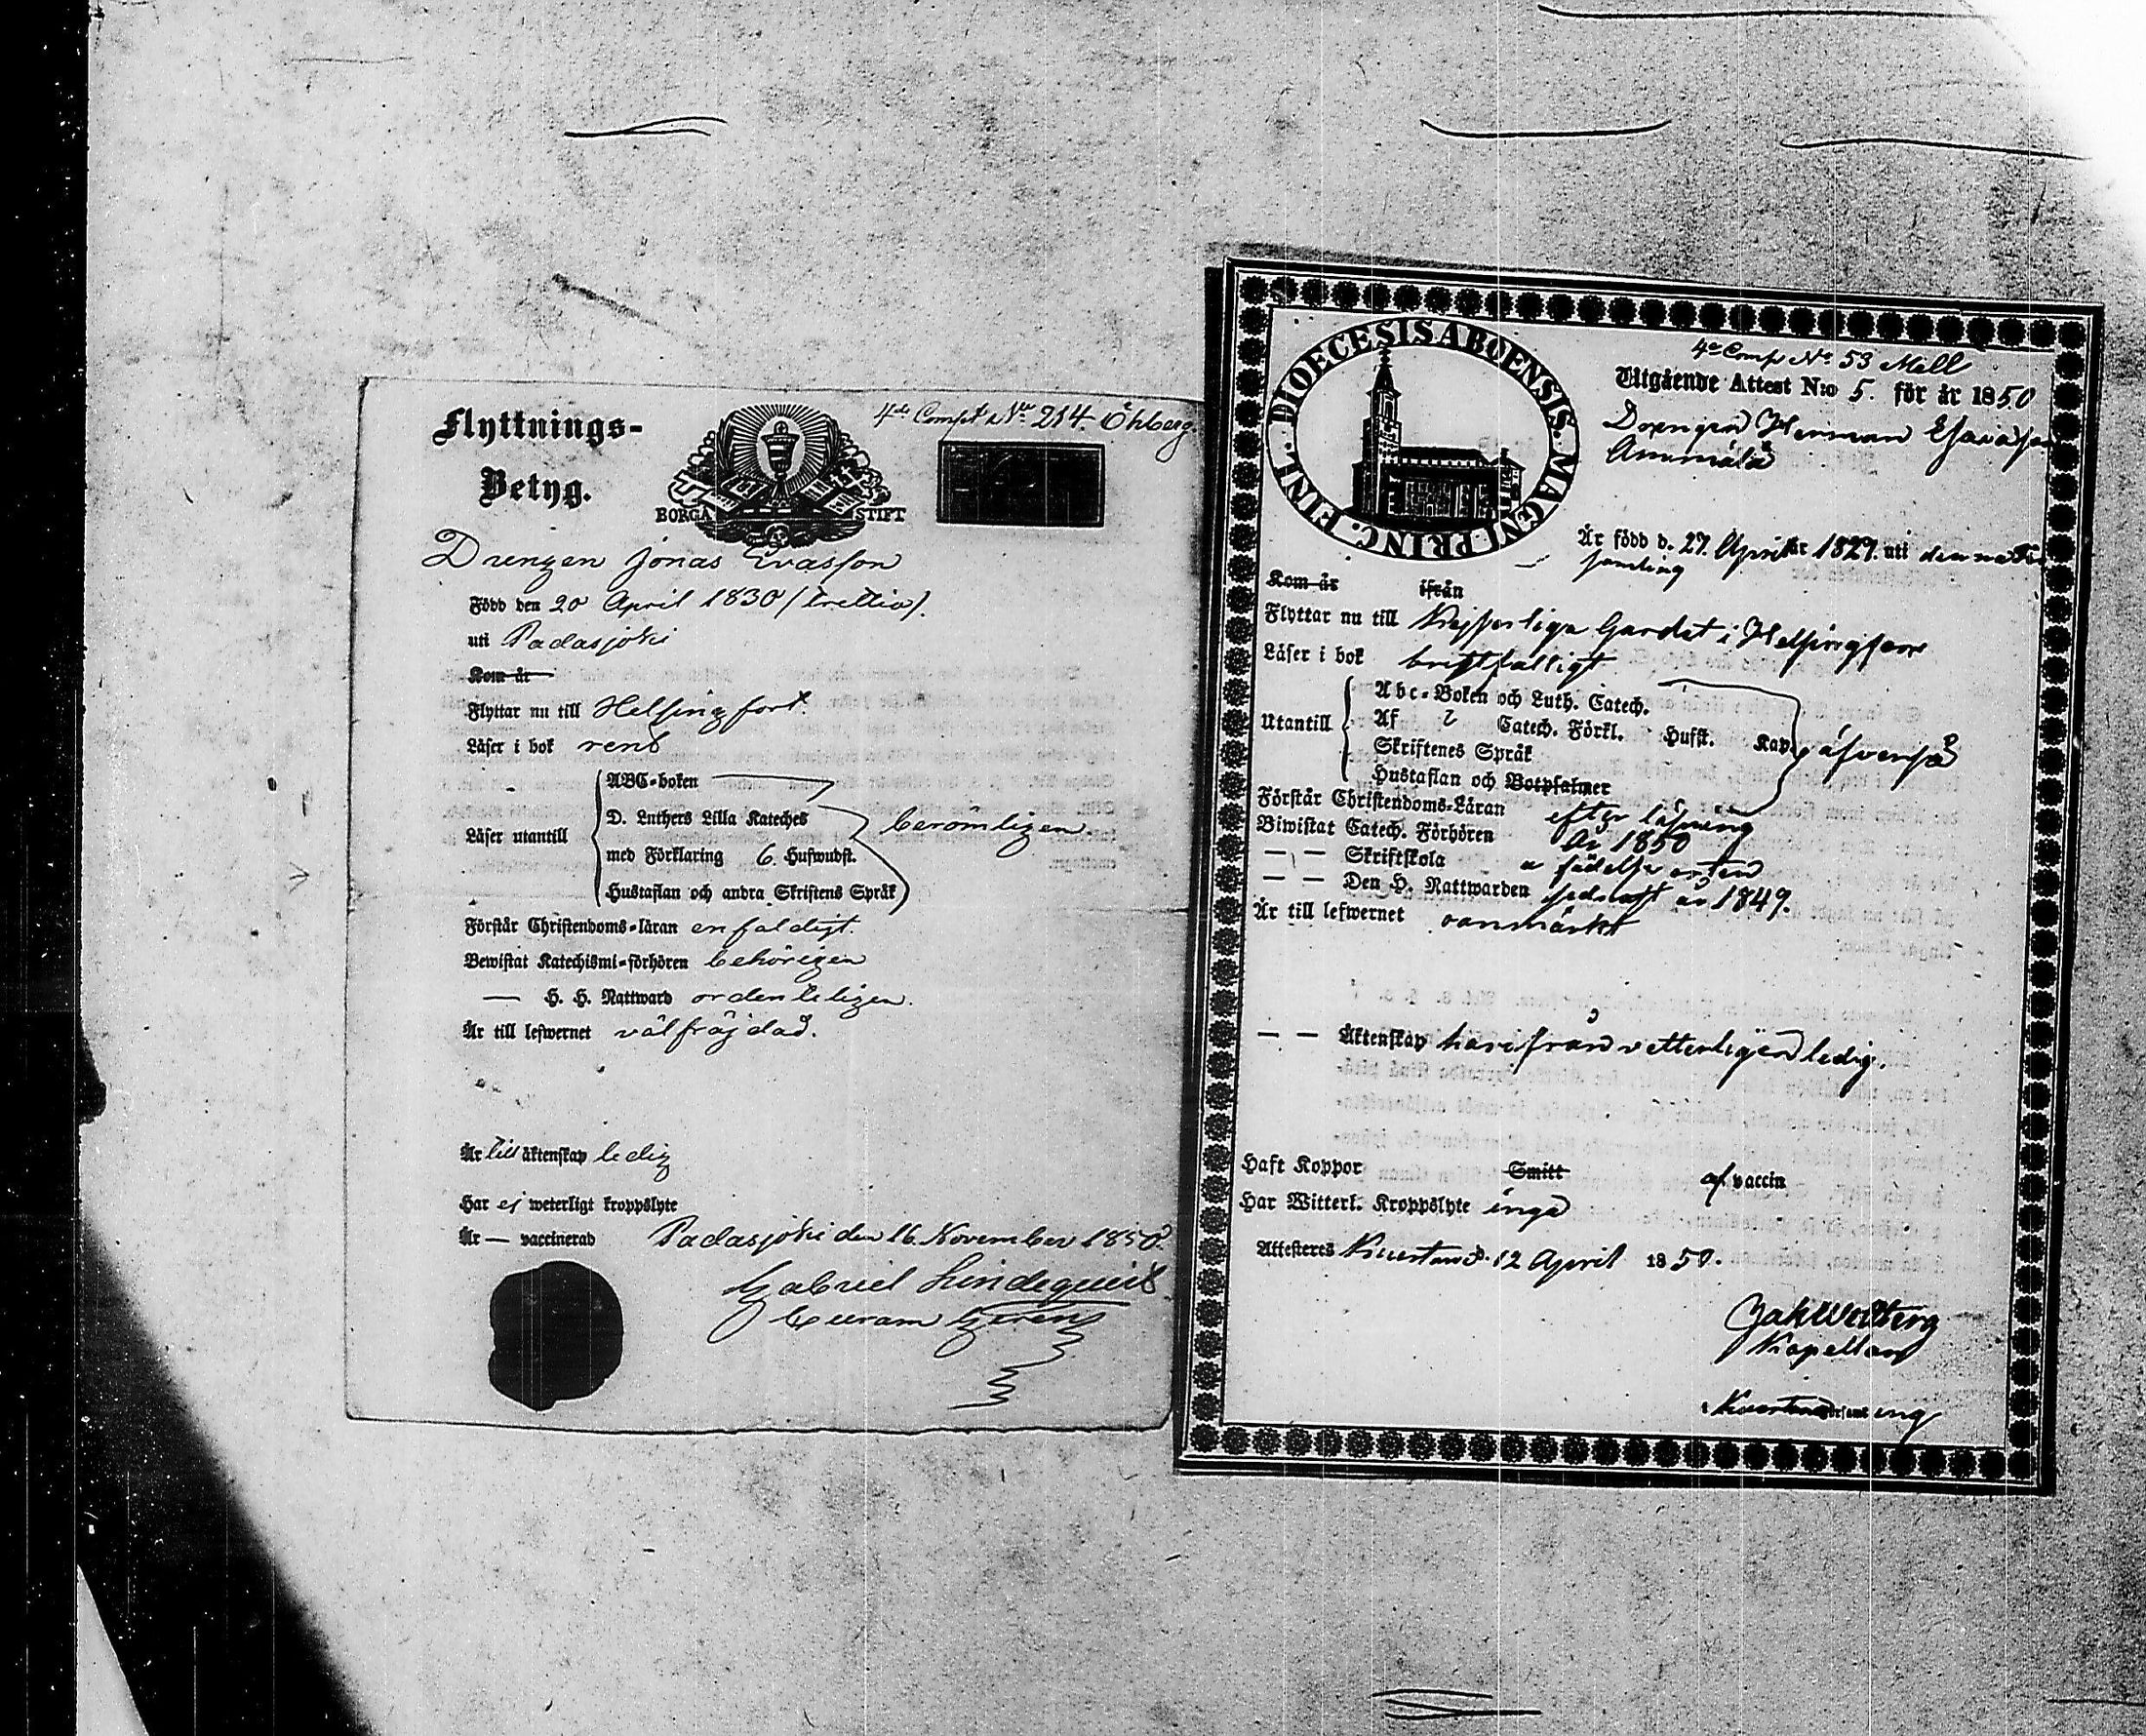 4de Comp. No 214. Öhberg.
Flyttnings-
Betyg.
BORGÅ STIFT
Drengen Jonas Evasson
Född den 20 April 1830 (trettio).
uti Padasjoki
Kom år
Flyttar nu till Helsingfors.
Läser i bok rent
Läser utantill
ABC-boken
D. Luthers Lilla Kateches
med Förklaring 6 Hufwudst.
Hustaflan och andra Skriftens Språk
berömligen
Förstår Christendoms-läran enfaldigt.
Bewistat Katechismi-förhören behörigen
— H. H. Nattward ordenteligen.
Är till lefwernet välfräjdad.
Är till äktenskap ledig
Har ej weterligt kroppslyte
Är — vaccinerad Padasjoki den 16 November 1850.
Gabriel Lindequist
Curam Gerens
DIOECESIS ABOENSIS. MAGNI PRINC. FINL.
4de Comp No 53 Mell
Utgående Attest N:o 5. för år 1850
Drengen Herman Esaiasson
Ammälä
Är född d. 27 April år 1829. uti denna för
samling
Kom år ifrån
Flyttar nu till Kejserliga Gardet i Helsingfors
Läser i bok bristfälligt
Utantill
Abc-Boken och Luth. Catech.
Af Catech. Förkl. Hufst. Kap.
Skriftenes Språk
Hustaflan och Botpsalmer
äfvenså
Förstår Christendoms-Läran efter läsning
Biwistat Catech. Förhören År 1850
— — Skriftskola å födelse orten
— — Den H. Nattwarden sednast år 1849.
Är till lefwernet oanmärkt
— — Äktenskap härifrån vetterligen ledig.
Haft Koppor Smitt af vaccin
Har Witterl. Kroppslyte inga
Attesteras d. 12 April 1850.
Kapellan